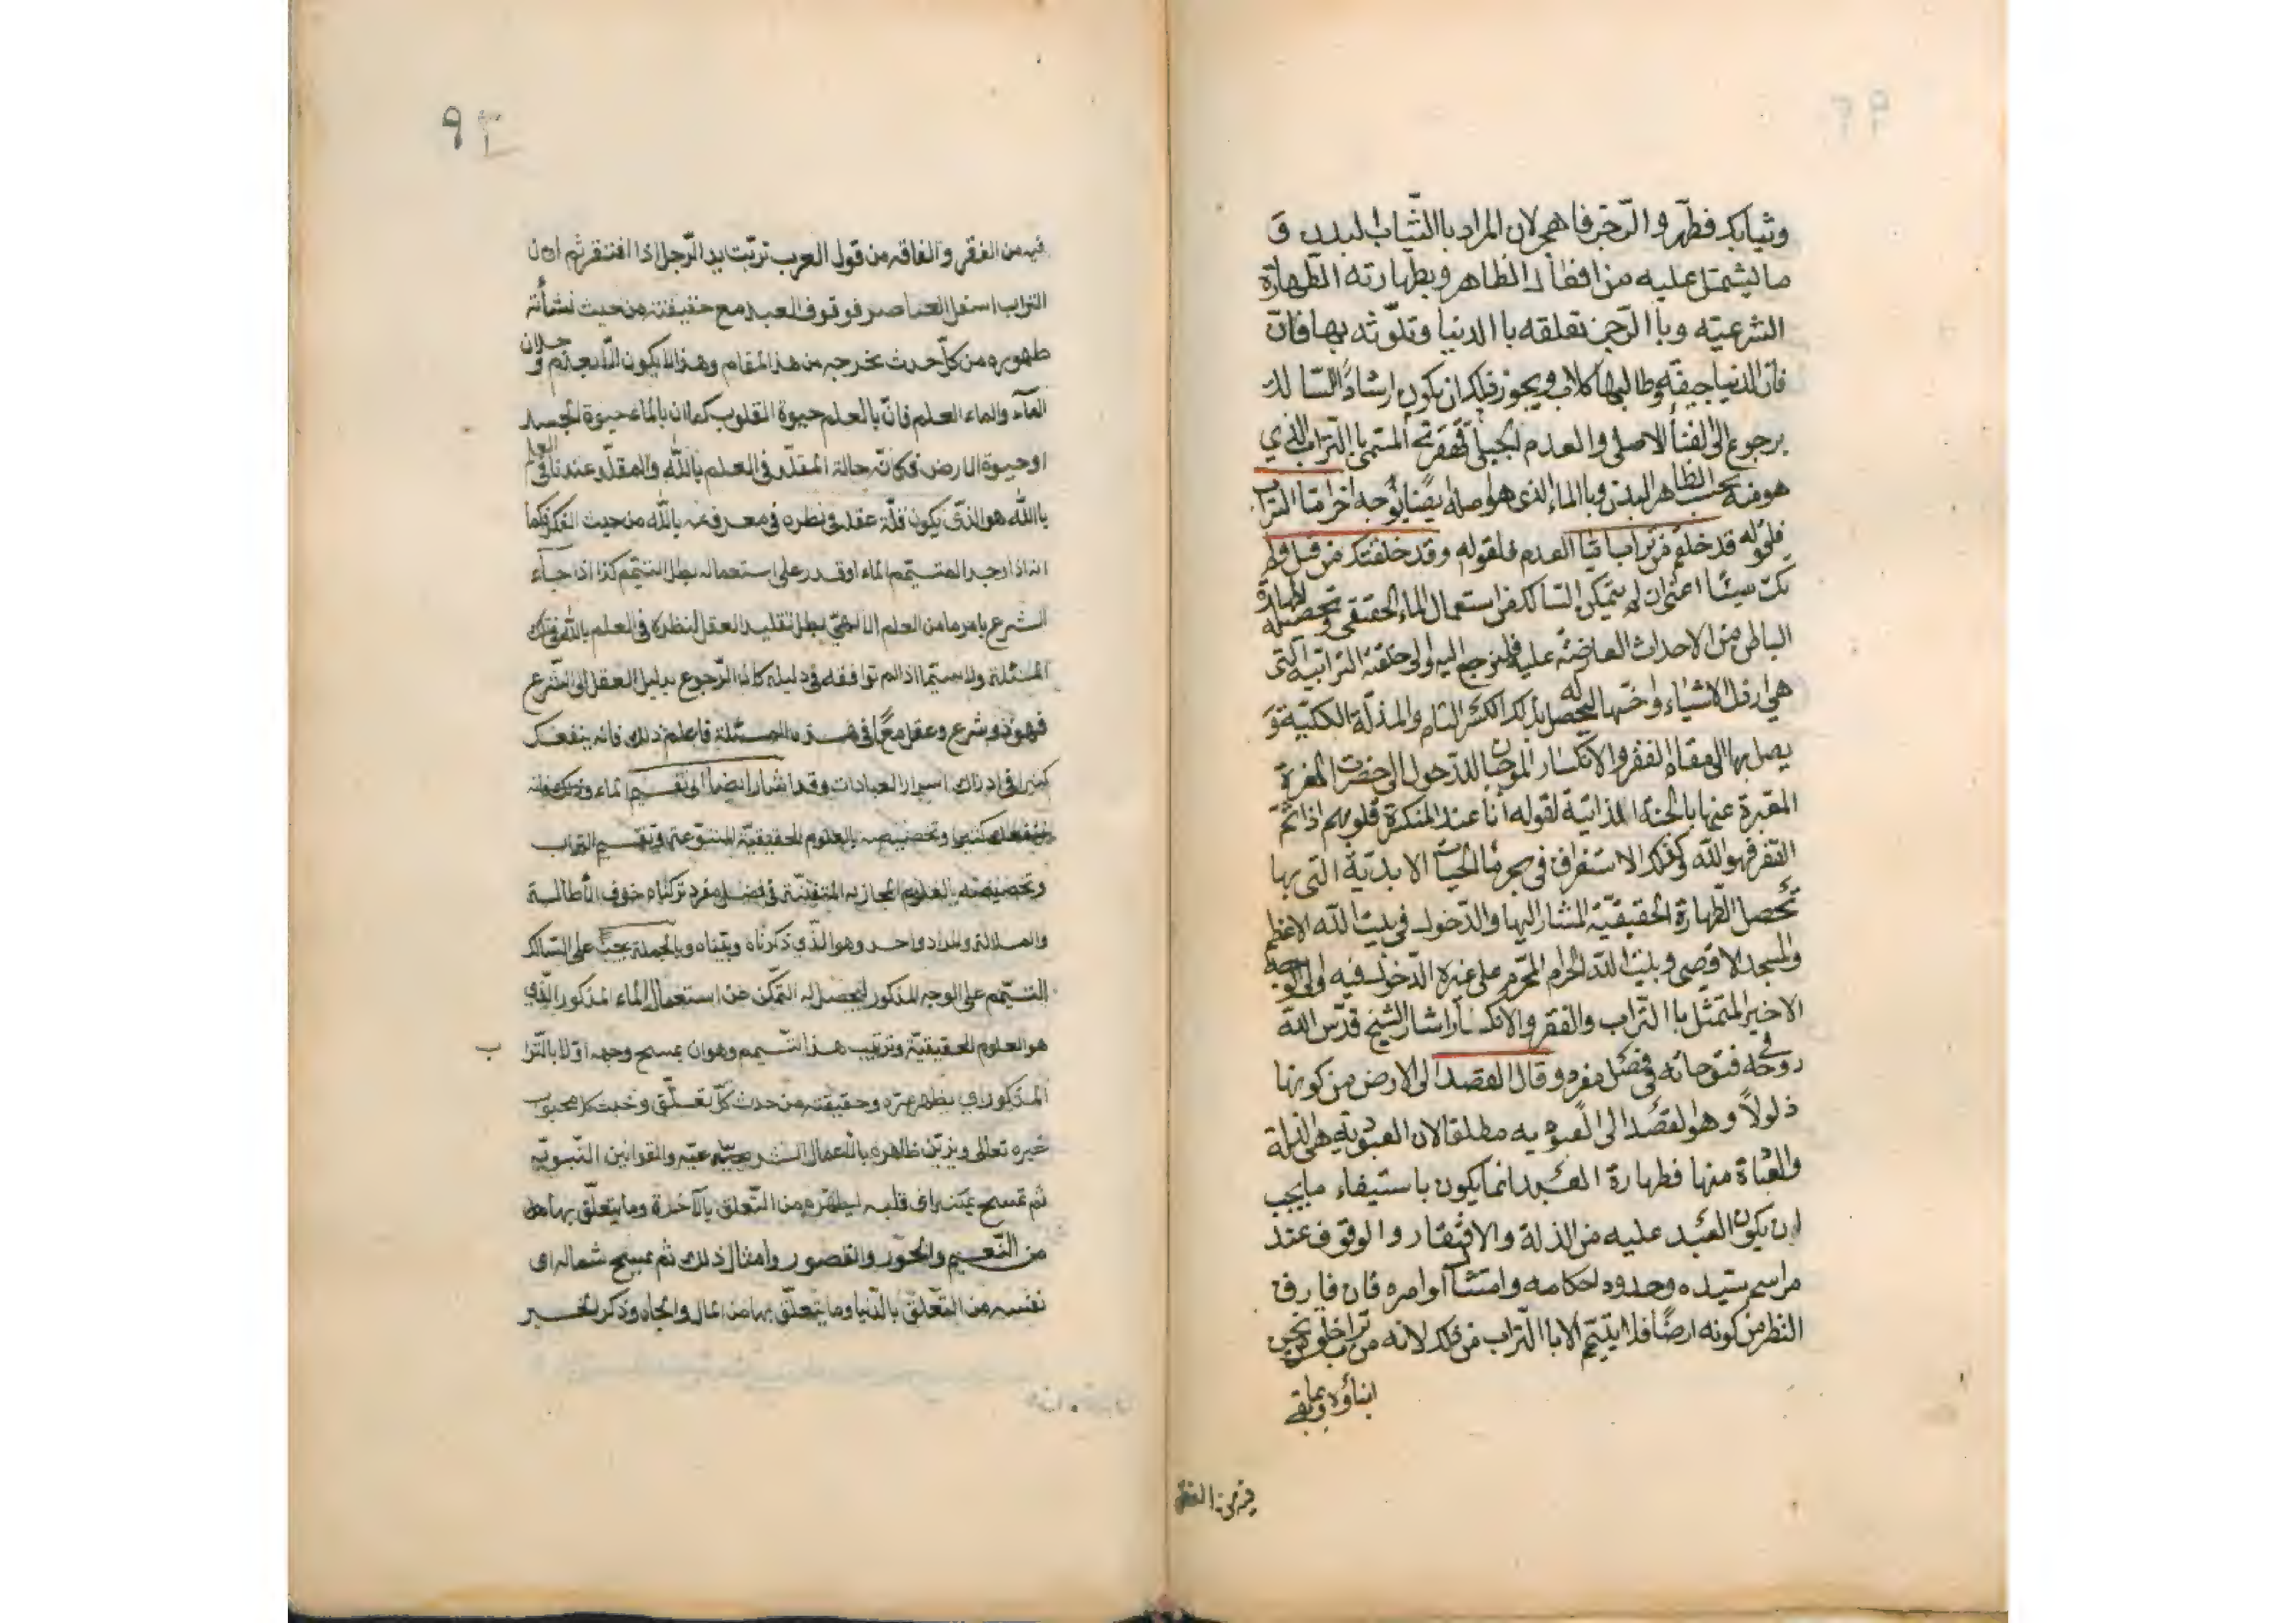 وثيابك فطهر والرّجز فاهجر لان المراد باالثّياب لبدن و
ما ليشتمل عليه من افعال الظاهر وبطهارته الطّهارة
الشرعيّه وباالرّجز تعلقه باالدنيا وتلوّثه بها فانّ
فان الدنيا جيفة وطالبها كلاب ويجوز فلك ان يكون ارشاداً السّالك
برجوع الى الفنأ الاصلى والعدم الجبلى المسمى باالتراب الذي
هو منه بحسب الظاهر البدن وباالماء الذى هو اصله ايضًا بوجه آخر امّا التراب
فلقوله قد خلقتم من تراب امّا العدم فلقوله وقد خلقتك من قبل ولم
تك شيئًا اعنى ان لم يتمكن السّالك من استعمال الماء الحقيقى وتحصيله لطهارة
الباطن من الاحداث العارضة عليه فليرجع اليه والى خلقته الترابيه التى
هى ارذل الاشياء واخسّها ليحصل له بذلك الكسر التام والمذلّة الكليّة و
يصل بها الى مقام الفقر والانكسار الموجبان للدخول الى حضرت العزة
المعبرة عنها بالجنّة الذاتية لقوله أنا عند المنكسرة قلوبهم اذا تمّ
الفقر فهو الله وكذلك الاستغراق في بحر مأ الحيات الابديّة التى بها
تحصل الطّهارة الحقيقيّة المشار اليها والدّخول في بيت الله الاعظم
والمسجد الاقصى وبيت الله الحرام المحرّم على غيره الدّخول فيه والى الوجه
الاخير المتمثل باالتراب والفقر والانكسار اشار الشيخ قدّس الله
روحه في فتوحاته في فصل مفرد وقال القصد الى الارض من كونها
ذلولاً وهو القصد الى العبوديه مطلقا لان العبوديه هى الذلة
والعبادة منها فطهارة العبد انما يكون باستيفاء ما يجب
ان يكون العبد عليه من الذلة والافتقار والوقوف عند
مراسم سيّده وحدوده احكامه وامتثال أوامره فان فارق
النظر من كونه ارضًا فلا يتيمّم الا باالتراب من ذلك لانه من تراب خلق من نحن
ابناؤه وبما بقى
فيه من الفقر
٩٣
فيه من الفقر والفاقه من قول العرب تربّت يد الرّجل اذا افتقر ثم ان
التراب اسفل العناصر فوقوف العبد مع حقيقته من حيث نشأته
طهوره من كلّ حدث يخرجه من هذا المقام وهذا لا يكون الا بعدم وجدان
المآء والماء العلم فانّ بالعلم حيوة القلوب كما ان بالماء حيوة الجسد
او حيوة الارض فكانّه حالة المقلّد في العلم بالله والمقلّد عندنا في العلم
بالله هو الذّى يكون قلّد عقله في نظره في معرفته بالله من حيث الفكر فكما
انه اذا وجد المتيمّم الماء او قدر على استعماله بطل التيمّم كذا اذا جآء
الشرع بامر ما من العلم الالهىّ بطل تقليد العقل لنظره في العلم بالله في تلك
المسئلة ولا سيّما اذا لم توافقه في دليله كان الرّجوع بدليل العقل الى الشّرع
فهو ذو شرع وعقل معًا في هذه المسئلة فاعلم ذلك فانه ينفعك
كثيرا في ادراك اسرار العبادات وقد اشار ايضاً الى تقسيم الماء
كثيرا وتخصيصه بالعلوم الحقيقيّة المتنوّعة وتقسيم التراب
وتخصيصه بالعلوم المجازيه المتفننّة في فصل مفرد تركناه خوف الاطالة
والملالة والمراد واحد وهو الذّي ذكرناه وبيّناه وبالجملة يجب على السّالك
التّيمّم على الوجه المذكور ليحصل له التمّكن من استعمال الماء المذكور الذّي
هو العلوم الحقيقيّة وترتيب هذا التّيمم وهو ان يمسح وجهه اوّلا بالتّرا ب
المذكور اي يطهر سرّه وحقيقته من حدث كلّ تعلّق وخبث كل محبوب
غيره تعالى ويزيّن ظاهره بالاعمال الشرعيّه والقوانين النّبويّه
ثم تمسح يمينه اى قلبه ليطهّره من التّعلق بالآخرة وما يتعلّق بها من
من النّعيم والحور والقصور وامثال ذلك ثم يمسح شماله اى
نفسه من التّعلّق بالدّنيا وما يتعلّق بها من المال والجاه وذكر الخير